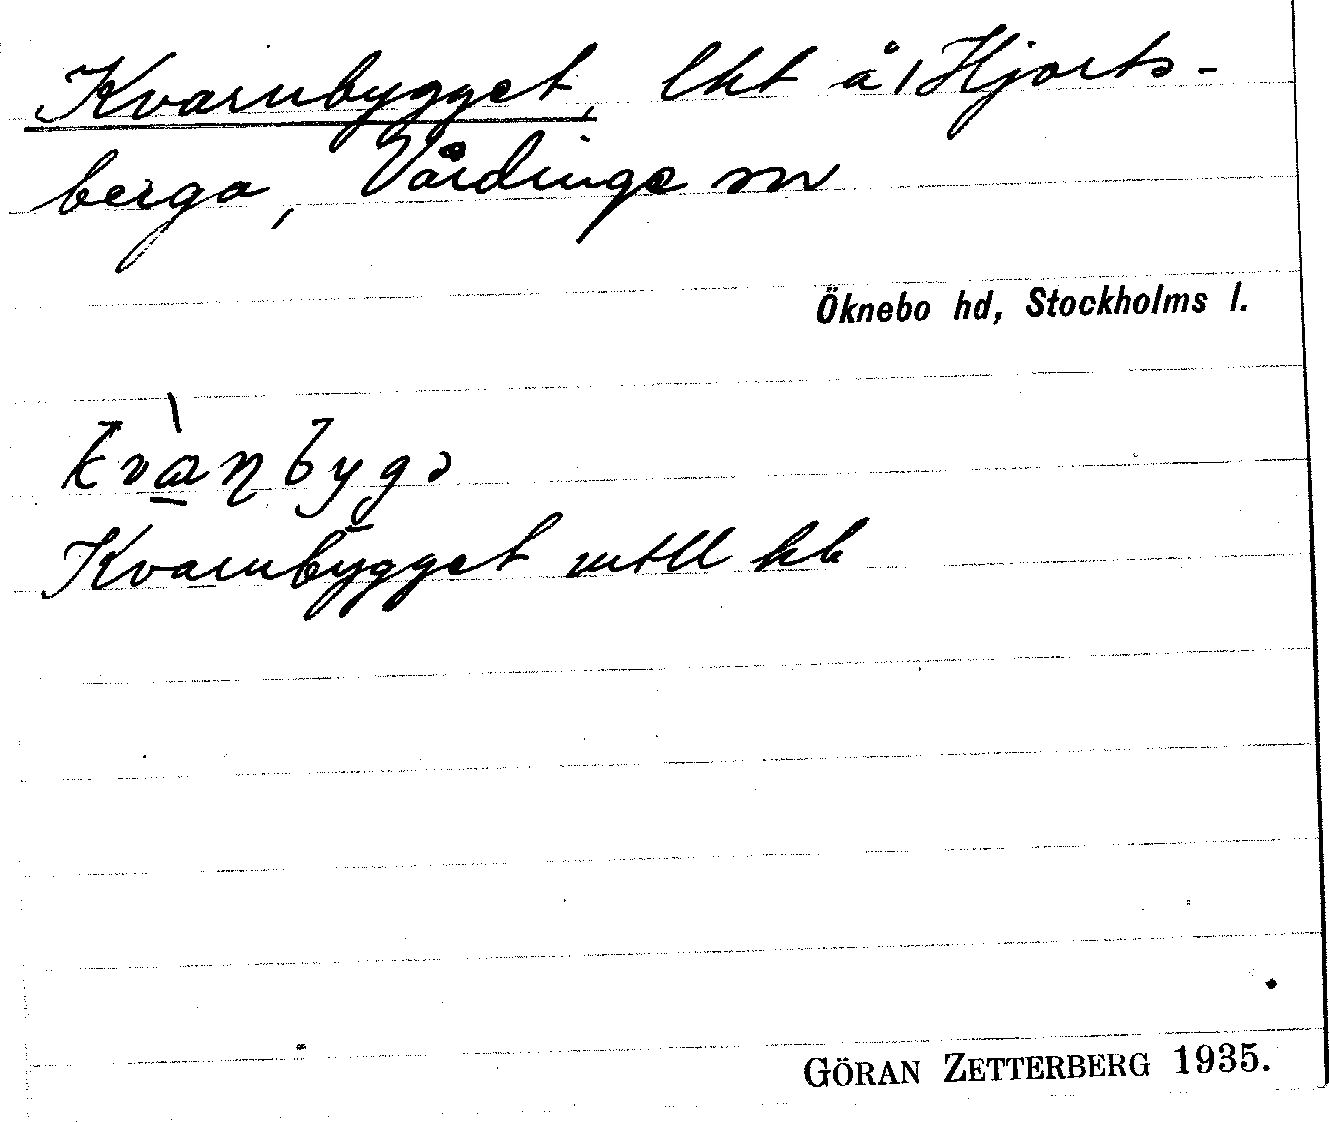 Kvarnbygget, lht å Hjorts-
berga, Vårdinge sn
Öknebo hd, Stockholms l.
kvànbygə
Kvarnbygget mtll hb
GÖRAN ZETTERBERG 1935.